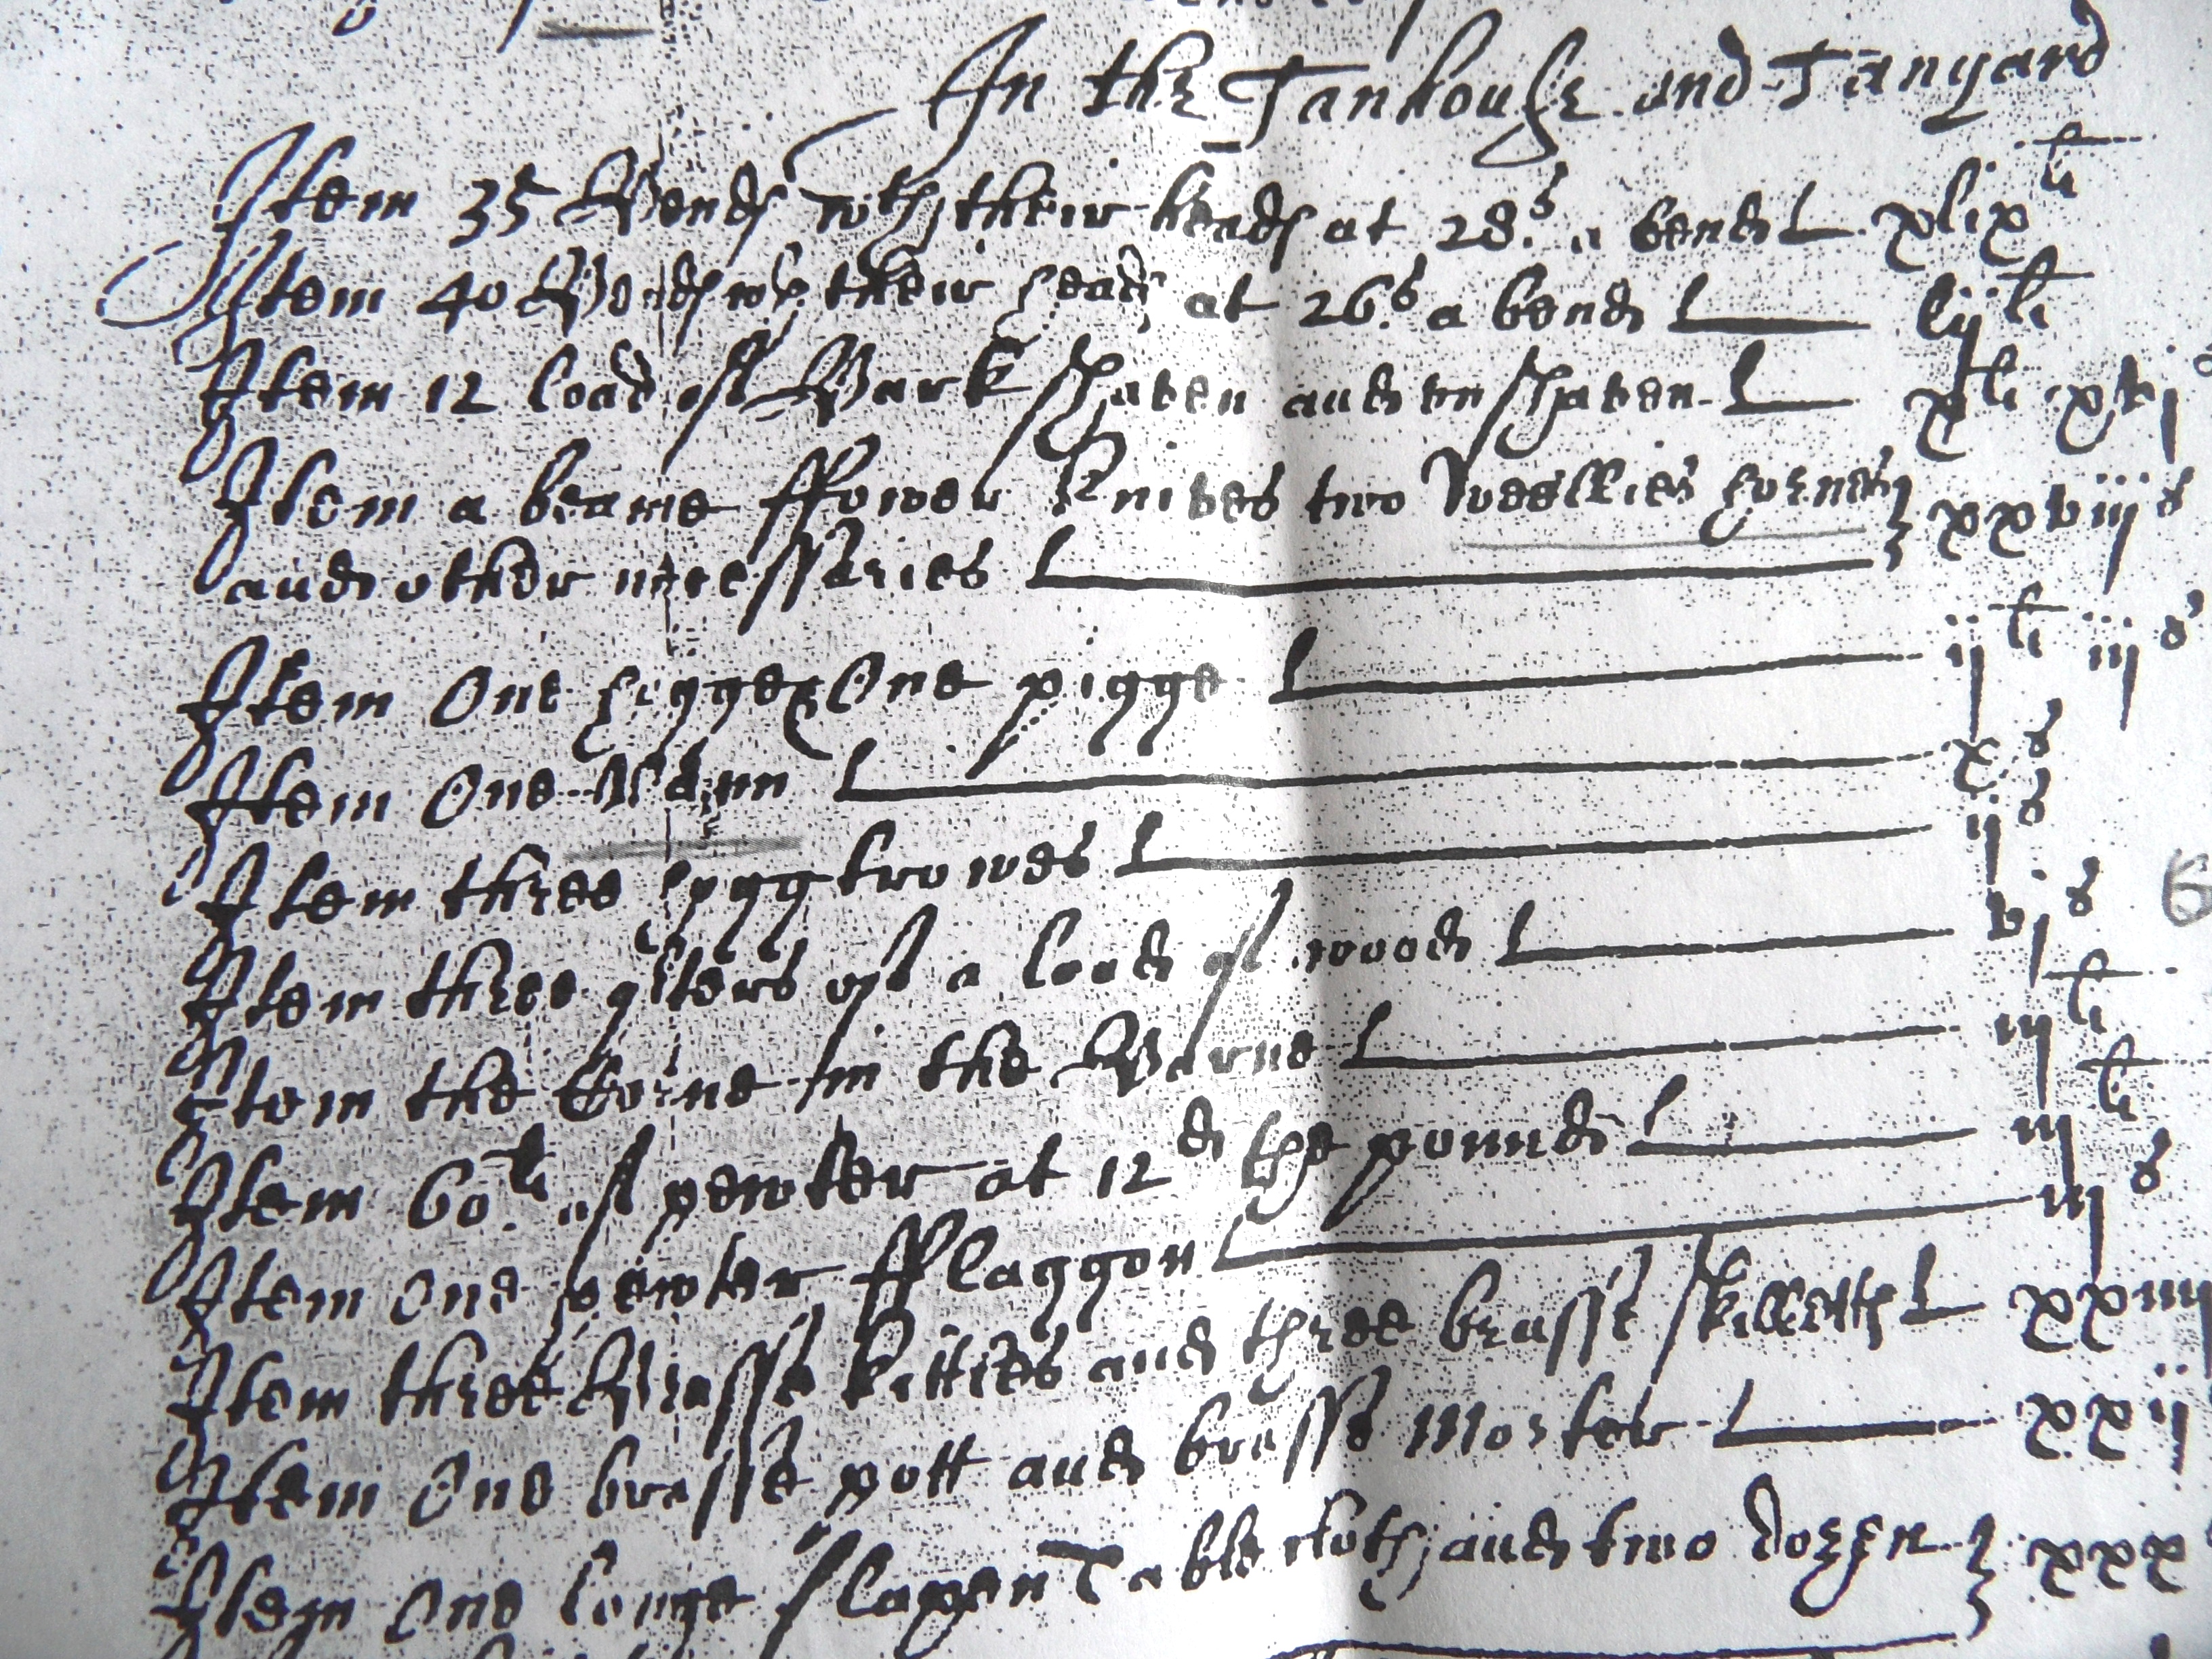 In the Tanhouse and Tanyard
Item 35 Bends wth their heads at 28s. a bend xlixli
Item 40 Bends wth their heads at 26s. a bend lijli
Item 12 load of Bark shaven and vnshaven xli xvjs
Item a beame ffower knives two hornes xxviijs
and other necessaries
Item One hogge One pigge ijli iijs
Item One Vann xs
Item three hogg trowes ijs
Item three qters of a load of wood vjs
Item the Corne in the Barne iijli
Item 60li of pewter at 12d the pound iijli
Item One pewter fflaggon iijs
Item three Brasse kittles and three brasse skilletts xxiiij
Item One brasse pott and brasse Morter xxij
Item One longe flaxen Table cloth and two dozen xxx